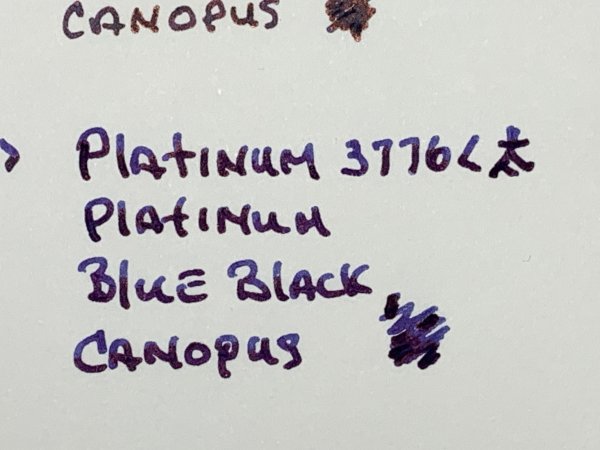 CANOPUS
> PLATINUM 3776 < 太
PLATINUM
BLUE BLACK
CANOPUS